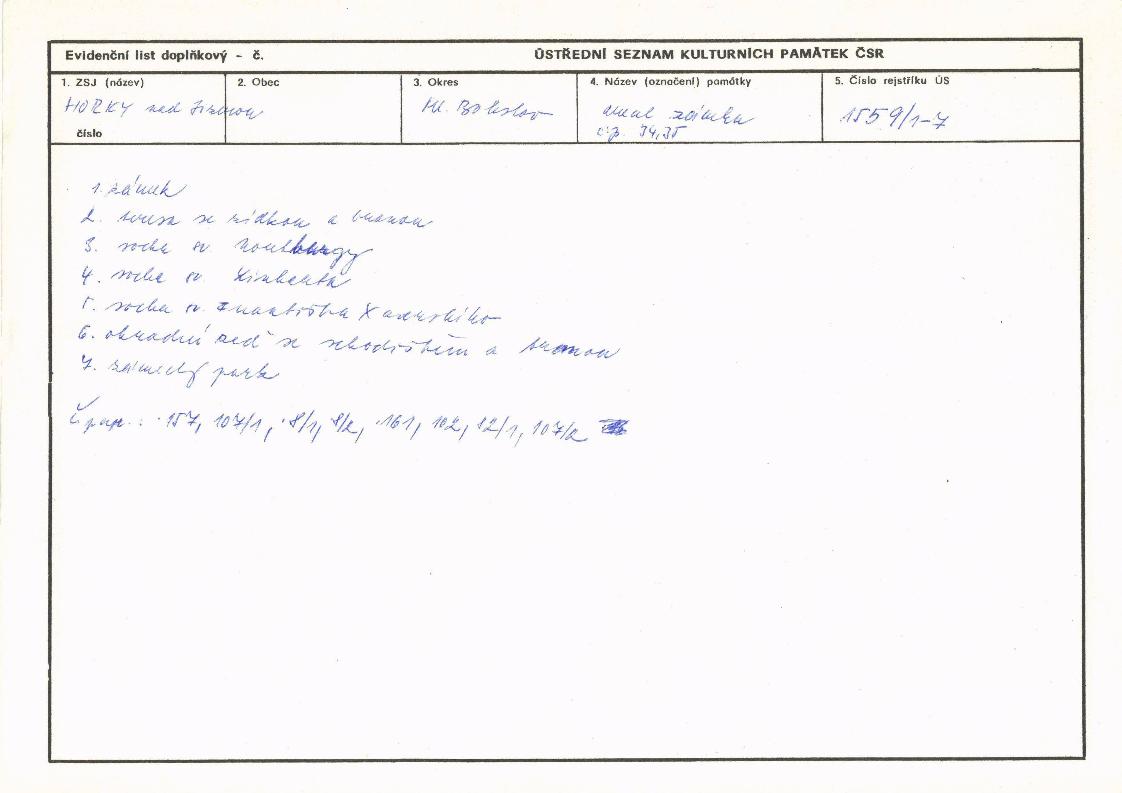 Evidenční list doplňkový - č.
ÚSTŘEDNÍ SEZNAM KULTURNÍCH PAMÁTEK ČSR
1. ZSJ (název)
2. Obec
3. Okres
4. Název (označení) památky
5. Číslo rejstříku ÚS
HORKY nad Jizerou
Ml. Boleslav
areál zámku
čp. 34,35
1559/1-7
číslo
1. zámek
2. terasa se zídkou a branou
3. socha sv. Notburgy
4. socha sv. Linharta
5. socha sv. Františka Xaverského
6. ohradní zeď se schodištěm a branou
7. zámecký park
Č.parc.: 157, 107/1, 8/1, 8/2, 161, 102, 12/1, 107/2